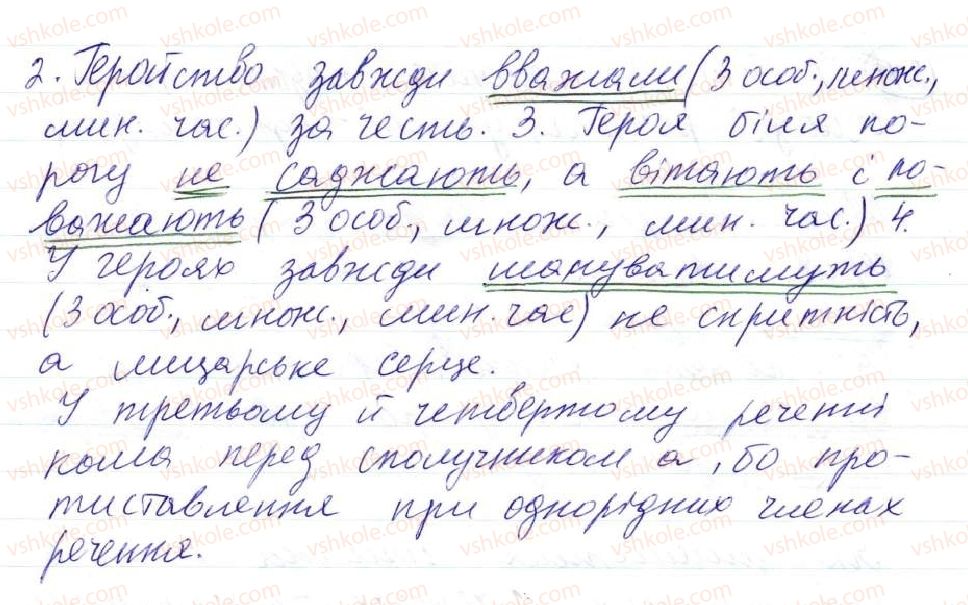 2. Геройство завжди вважали (3 особ., множ.,
мин. час.) за честь. 3. Героя біля по-
рогу не саджають, а вітають і по-
важають (3 особ., множ., мин. час.) 4.
У героях завжди шануватимуть
(3 особ., множ., мин. час) не спритність,
а лицарське серце.
У третьому й четвертому реченні
кома перед сполучником а, бо про-
тиставлення при однорідних членах
речення.